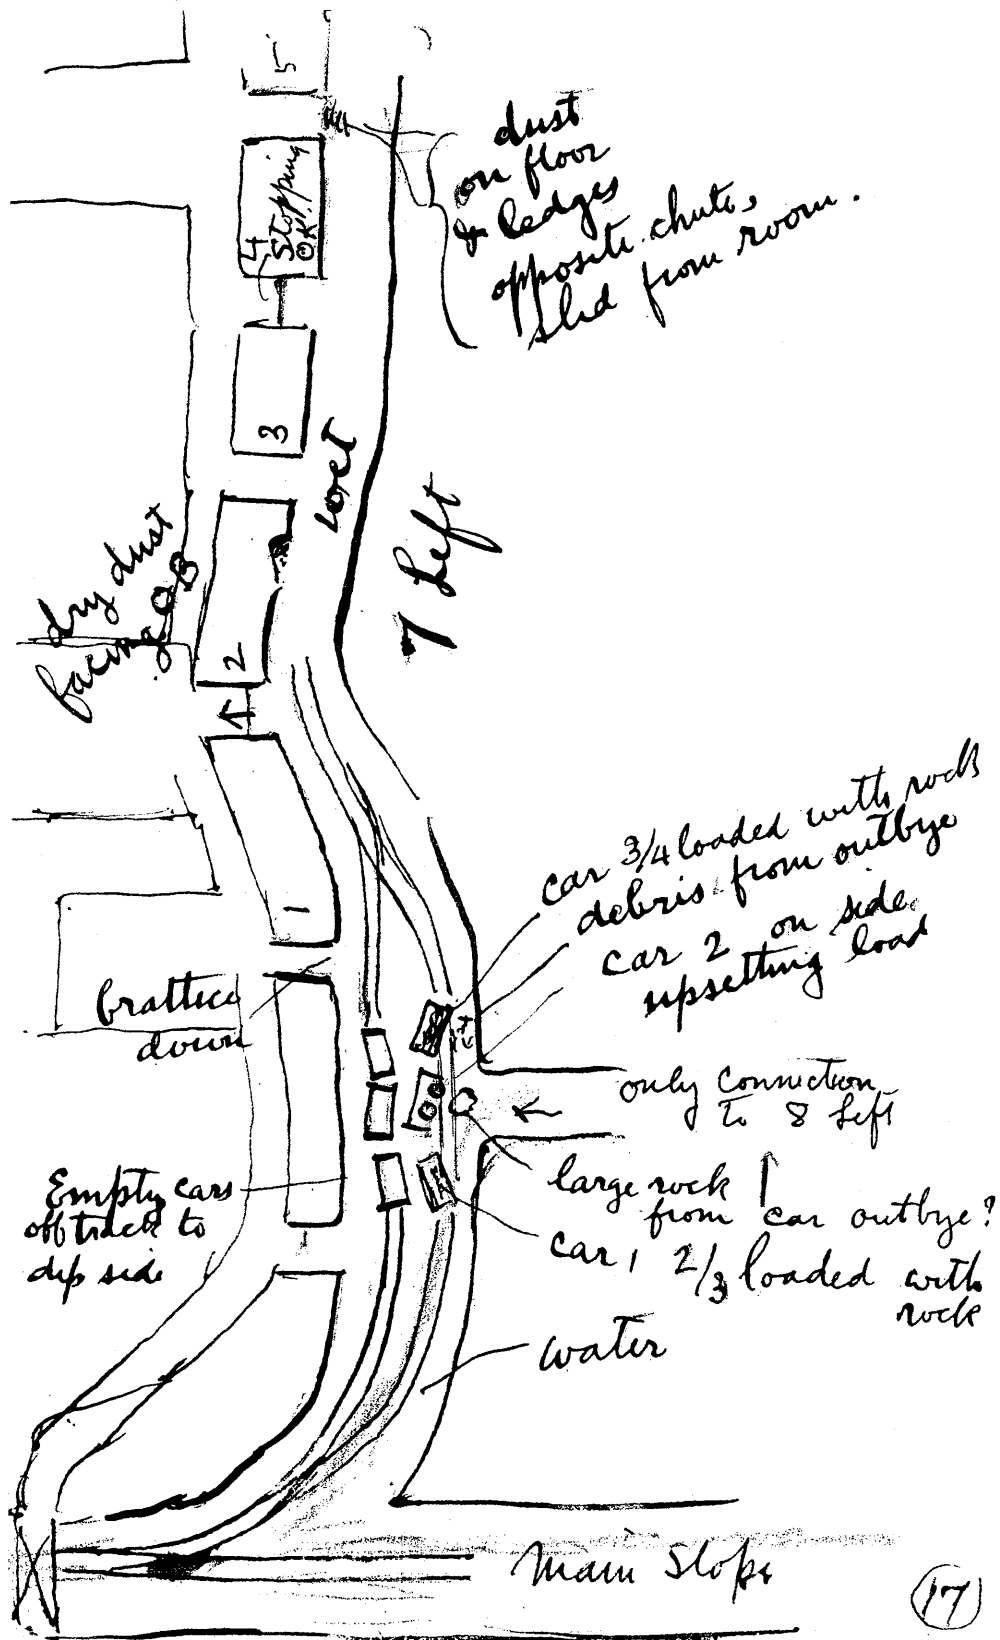 5
dust
on floor
& ledges
opposite chute,
slid from room.
4
Stopping
OK.
3
Level
7 Left
dry dust
facing OB
2
1
car 3/4 loaded with rock
debris from outbye
car 2 on side
upsetting load
brattice
down
only connection
to 8 Left
large rock
from car outbye?
Empty cars
off track to
dip side
car 1 2/3 loaded with
rock
water
Main Slope
17